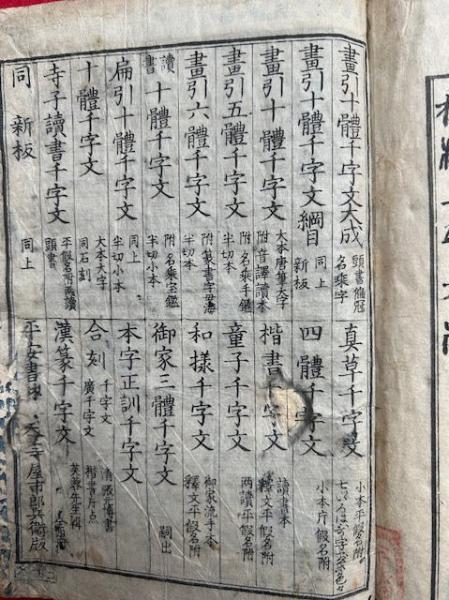 畫引十體千字文大成 頭書偏冠 名乘字 真草千字文 小本平假名附
畫引十體千字文綱目 同上 新板 四體千字文 小本片假名附
畫引十體千字文 大本唐筆大字 附音譯讀本 楷書千字文 讀書本 釋文平假名附
畫引五體千字文 附名乘手鑑 半切本 童子千字文 兩讀平假名附
畫引六體千字文 附篆書字母海 半切本 和樣千字文 御家流手本 釋文平假名附
讀書 十體千字文 附名乘字鑑 半切小本 御家三體千字文 嗣出
扁引十體千字文 同上 半切小本 本字正訓千字文
十體千字文 大本大字 同石刻 合刻 千字文 廣千字文 楷書片点
寺子讀書千字文 平假名音兩讀 頭書 漢篆千字文 芙蓉先生輯
同 新板 同上 平安書 天王寺屋市郎兵衛版